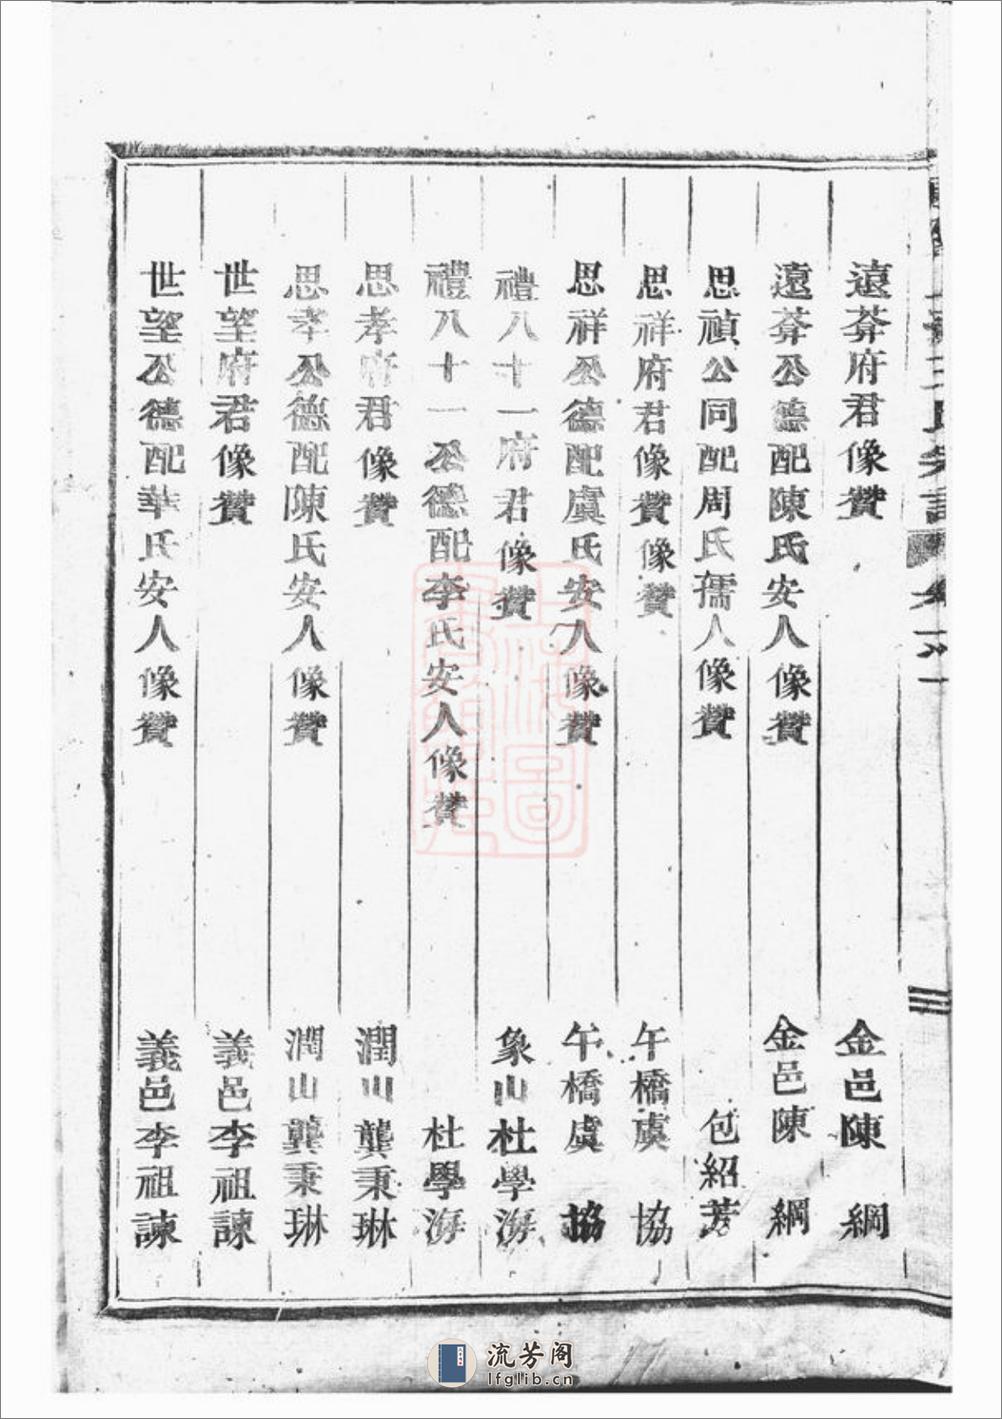 遠莾府君像贊　金邑陳　綱
遠莾公德配陳氏安人像贊　金邑陳　綱
思禎公同配周氏孺人像贊　包紹芳
思祥府君像贊像贊　午橋虞　協
思祥公德配虞氏安人像贊　午橋虞　協
禮八十一府君像贊　象山杜學海
禮八十一公德配李氏安人像贊　杜學海
思孝府君像贊　潤山龔秉琳
思孝公德配陳氏安人像贊　潤山龔秉琳
世望府君像贊　義邑李祖諫
世望公德配華氏安人像贊　義邑李祖諫
上海圖
流芳阁
lfglib.cn